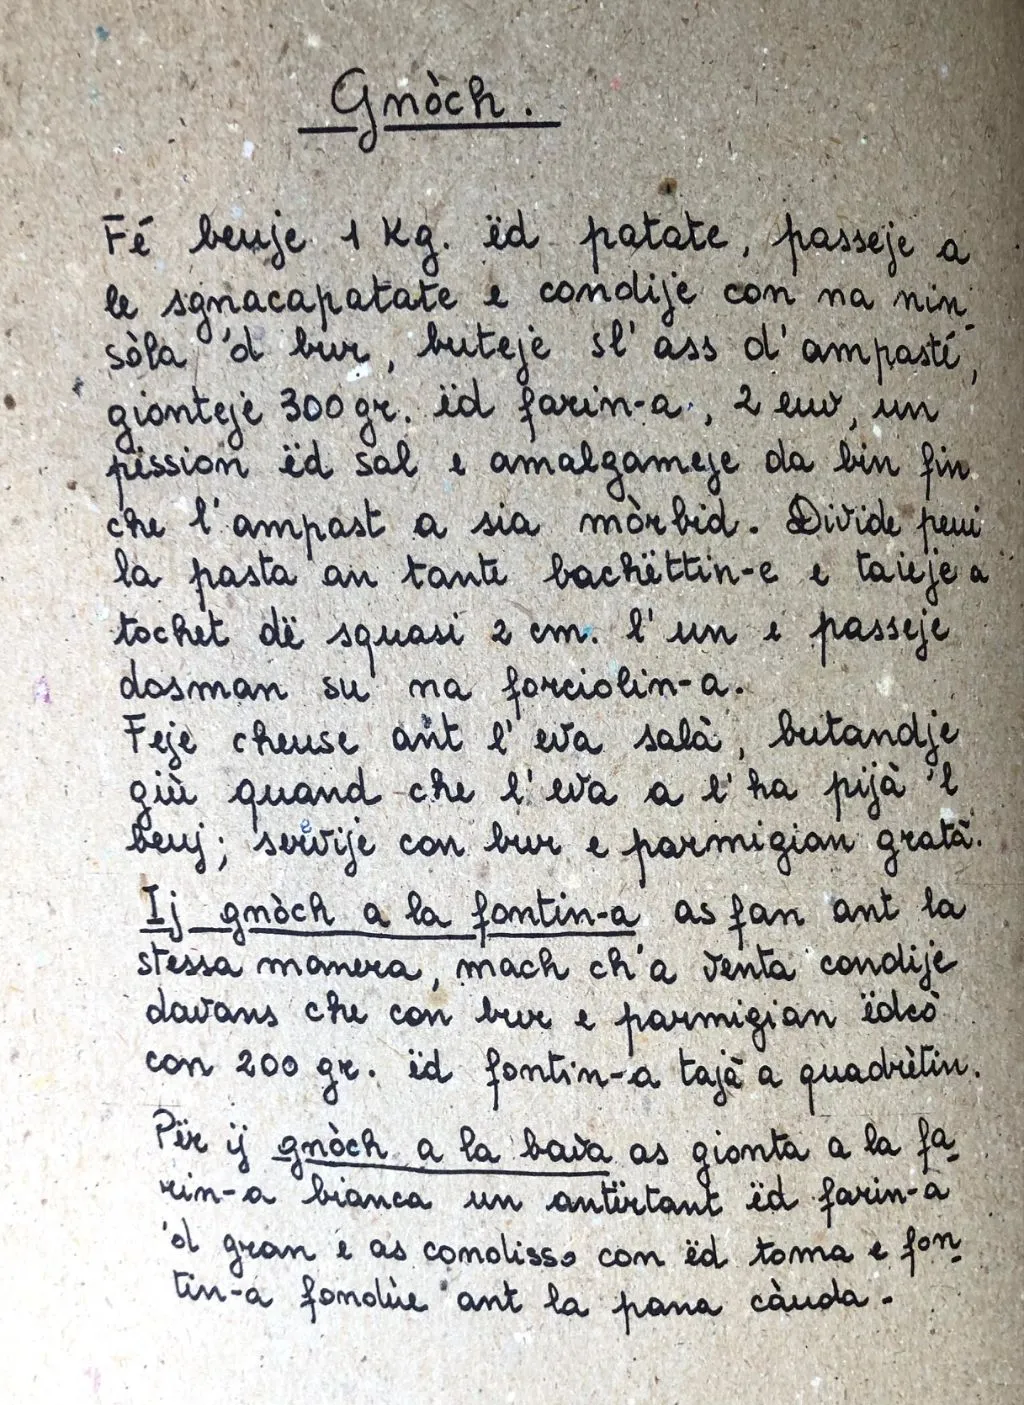 Gnòch.
Fé beuje 1 Kg. ëd patate, passeje a
le sgnacapatate e condije con na nin-
sòla 'd bur, buteje sl' ass d' ampasté,
gionteje 300 gr. ëd farin-a, 2 euv, un
pëssion ëd sal e amalgameje da bin fin
che l'ampast a sia mòrbid. Divide peui
la pasta an tante bachëttin-e e taieje a
tochet dë squasi 2 cm. l'un e passeje
dosman su na forciolin-a.
Feje cheuse ant l'eva salà, butandje
giù quand che l'eva a l'ha pijà 'l
beuj; servije con bur e parmigian gratà.
Ij gnòch a la fontin-a as fan ant la
stessa manera, mach ch'a venta condije
davans che con bur e parmigian ëdcò
con 200 gr. ëd fontin-a tajà a quadrètin.
Për ij gnòch a la bava as gionta a la fa-
rin-a bianca un antërtant ëd farin-a
'd gran e as condisso con ëd toma e fon-
tin-a fondùe ant la pana càuda.